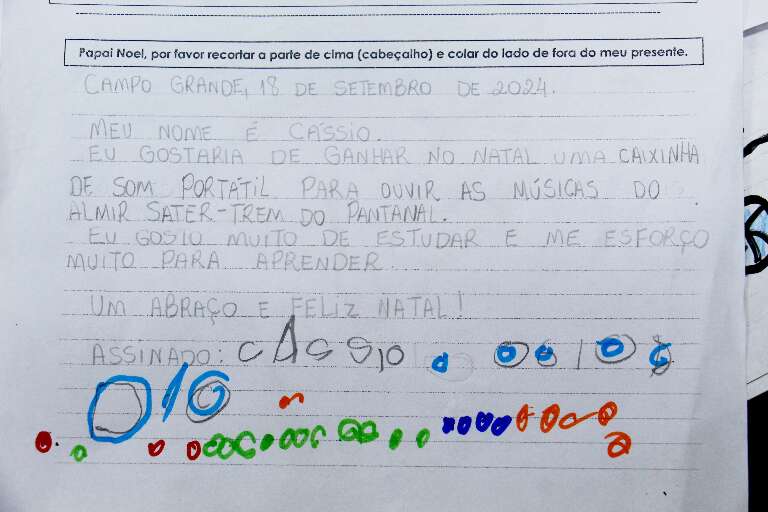 Papai Noel, por favor recortar a parte de cima (cabeçalho) e colar do lado de fora do meu presente.
CAMPO GRANDE, 18 DE SETEMBRO DE 2024.
MEU NOME É CÁSSIO.
EU GOSTARIA DE GANHAR NO NATAL UMA CAIXINHA
DE SOM PORTÁTIL PARA OUVIR AS MÚSICAS DO
ALMIR SATER-TREM DO PANTANAL.
EU GOSTO MUITO DE ESTUDAR E ME ESFORÇO
MUITO PARA APRENDER.
UM ABRAÇO E FELIZ NATAL!
ASSINADO: CÁSSIO